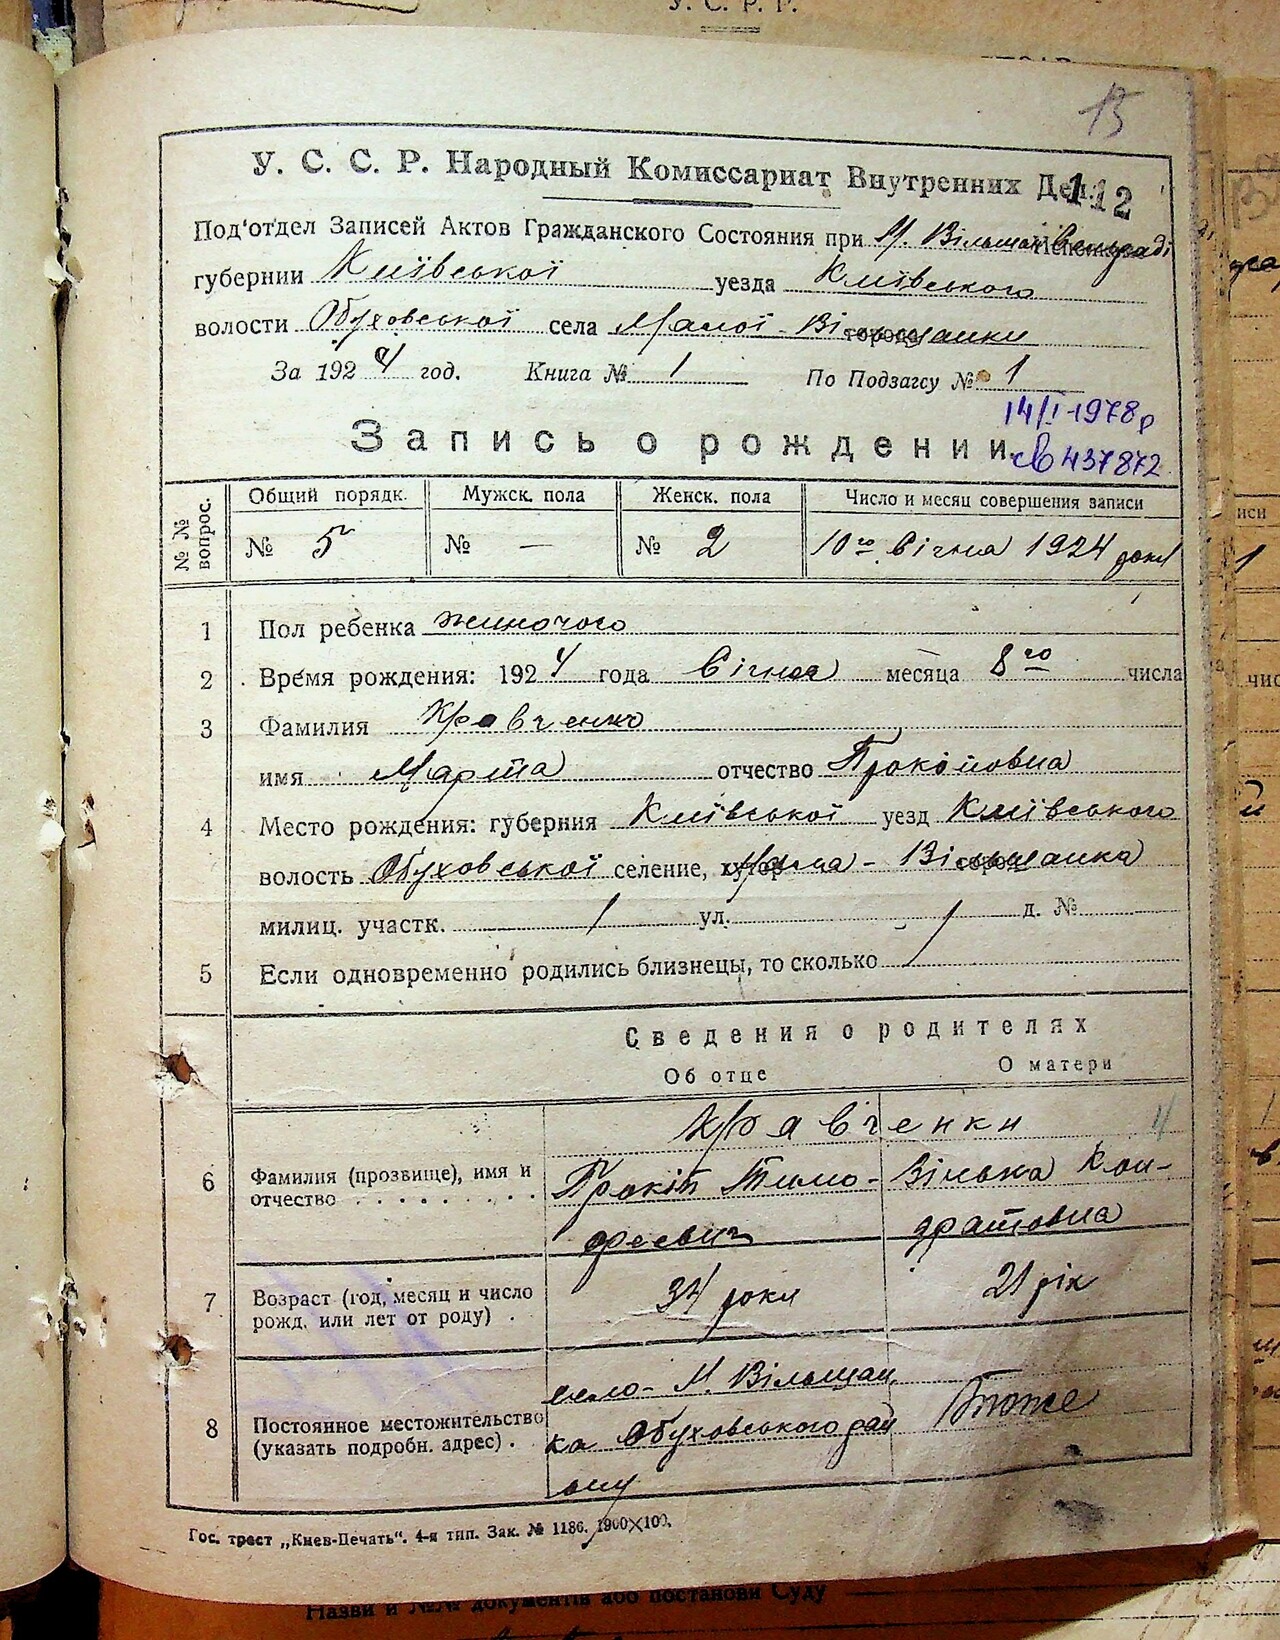 У. С. Р. Р.
13
У. С. С. Р. Народный Комиссариат Внутренних Дел.
112
Под'отдел Записей Актов Гражданского Состояния при М. Вільшан
губернии Київської уезда Київського
волости Обуховської села Малої-Вільшанки
За 1924 год. Книга № 1 По Подзагсу № 1
14/I-1978р
Запись о рождении.
св 437872
№ № вопрос.
Общий порядк. Мужск. пола Женск. пола Число и месяц совершения записи
№ 5 № — № 2 10го Січня 1924 року
1 Пол ребенка жиночого
2 Время рождения: 1924 года Січня месяца 8го числа
3 Фамилия Кравченко
имя Марта отчество Прокоповна
4 Место рождения: губерния Київської уезд Київського
волость Обуховської селение, хутор Мала-Вільшанка
милиц. участк. / ул. / д. №
5 Если одновременно родились близнецы, то сколько /
Сведения о родителях
Об отце О матери
Кравченки
6 Фамилия (прозвище), имя и отчество . . . . . . . . . Прокіп Тимо- Вілька Кон-
фееви дратовна
7 Возраст (год, месяц и число рожд. или лет от роду) . 34 роки 21 рік
село- М. Вільшан
8 Постоянное местожительство (указать подробн. адрес) . ка Обуховського рай Тоже
ону
Гос. трест „Киев-Печать“. 4-я тип. Зак. № 1186. 1900×100.
Назви и №№ документів або постанови Суду